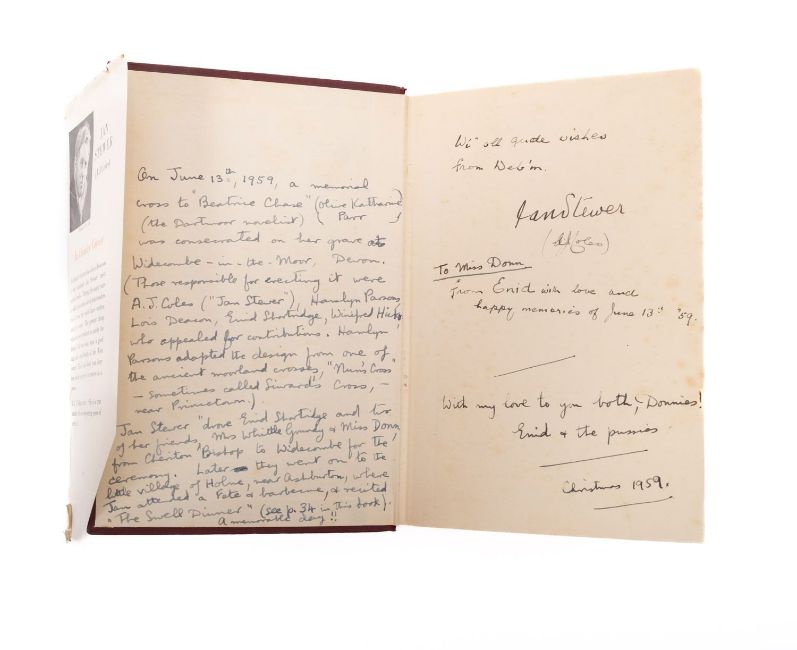 JAN
STEWER
On June 13th, 1959, a memorial
cross to "Beatrice Chase" (Olive Katharine
(the Dartmoor novelist) ( Parr )
was consecrated on her grave at
Widecombe-in-the-Moor, Devon.
(Those responsible for erecting it were
A.J. Coles ("Jan Stewer"), Hamlyn Parsons,
Lois Deacon, Enid Shortridge, Winifred Hicks,
who appealed for contributions. Hamlyn
Parsons adapted the design from one of
the ancient moorland crosses, "Nun's Cross"
- sometimes called Siward's Cross, -
near Princetown.).
Jan Stewer "drove Enid Shortridge and two
of her friends, Mrs Whittle Gunday & Miss Donn,
from Cheriton Bishop to Widecombe for the
ceremony. Later they went on to the
little village of Holne, near Ashburton, where
Jan attended a Fete & barbecue, & recited
"The Swell Dinner" (see p. 34 in this book).
A memorable day!!
Wi' all gude wishes
from Deb'm.
Jan Stewer
(AJColes)
To Miss Donn
from Enid with love and
happy memories of June 13th '59.
With my love to you both, "Donnies"!
Enid & the pussies
Christmas 1959.